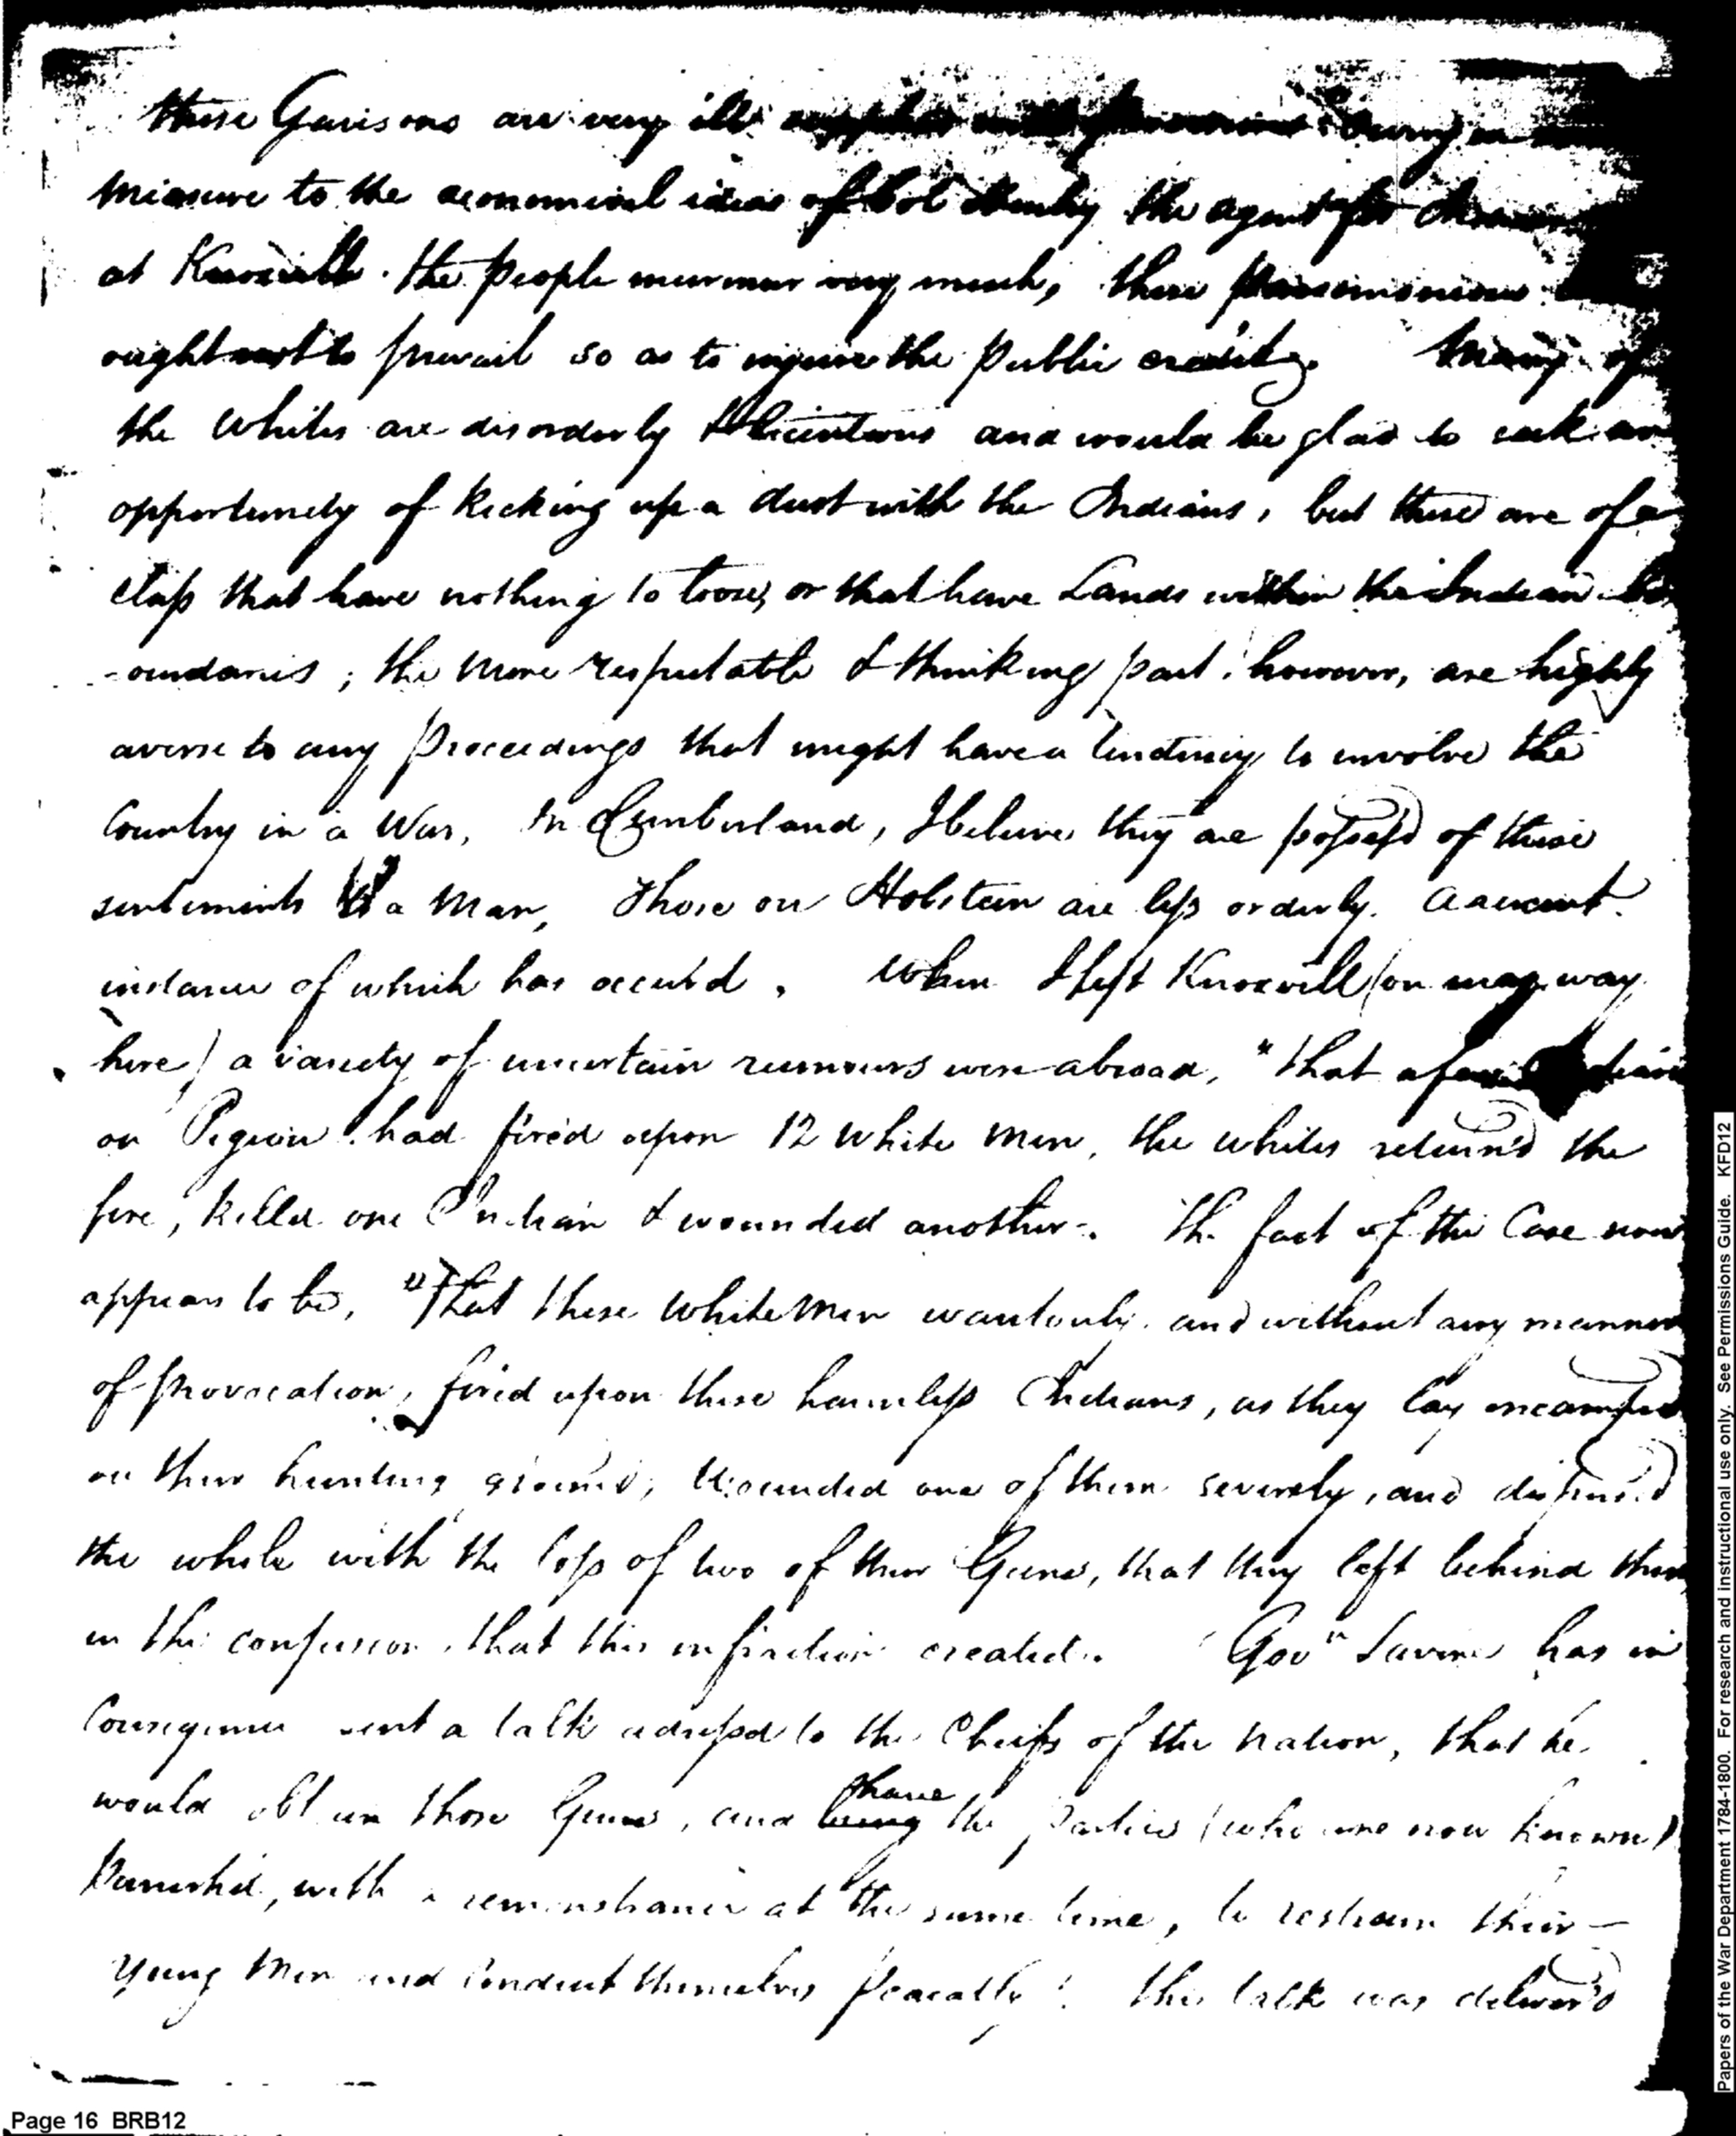 these Garisons are very ill supplied with provisions owing in
measure to the economical ideas of Col Henley the agent for
at Knoxvill. the people murmur very much, these parsimonious
ought not to prevail so as to injure the public credit. Many of
the Whites are disorderly & licentious and would be glad to seek an
opportunity of kicking up a dust with the Indians, but these are of a
class that have nothing to loose, or that have Lands within the Indian bo
-oundaries; the more respectable & thinking part, however, are highly
averse to any proceedings that might have a tendency to involve the
Country in a War, In Cumberland, I beleive they are possess'd of these
sentiments to a Man, Those on Holstein are less orderly. A recent
instance of which has occur'd. When I left Knoxvill (on my way
here) a variety of uncertain rumours were abroad, "that a few
on Pigeon had fired upon 12 White Men, the whites return'd the
fire, killed one Indian & wounded another. The fact of the Case now
appears to be, "That these White Men wantonly and without any manner
of provocation, fired upon these harmless Indians, as they lay encamped
on their hunting ground, Wounded one of them severely, and dispersed
the whole with the loss of two of their Guns, that they left behind them
in the confusion that this infraction created. Govr Savire has in
Consequence sent a talk adressed to the Cheifs of the Nation, that he
would obtain those Guns, and
have
bring the parties (who are now known)
Punished, with a remonstrance at the same time, to restrain their —
Young Men and Conduct themselves peaceably. This talk was deliver'd
Page 16 BRB12
Papers of the War Department 1784-1800. For research and instructional use only. See Permissions Guide. KFD12